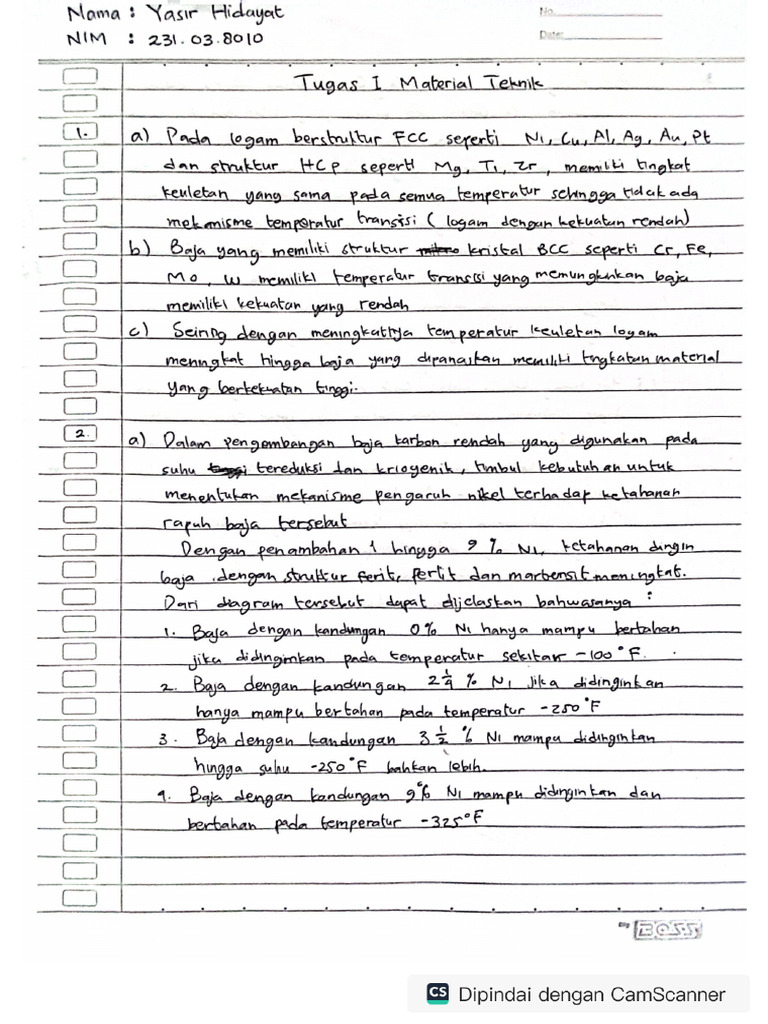 Nama : Yasir Hidayat
NIM : 231.03.8010
No.
Date:
Tugas I Material Teknik
1. a) Pada logam berstruktur FCC seperti Ni, Cu, Al, Ag, Au, Pt
dan struktur HCP seperti Mg, Ti, Zr, memiliki tingkat
keuletan yang sama pada semua temperatur sehingga tidak ada
mekanisme temperatur transisi (logam dengan kekuatan rendah)
b) Baja yang memiliki struktur kristal BCC seperti Cr, Fe,
Mo, W memiliki temperatur transisi yang memungkinkan baja
memiliki kekuatan yang rendah
c) Seiring dengan meningkatnya temperatur keuletan logam
meningkat hingga baja yang dipanaskan memiliki tingkatan material
yang berkekuatan tinggi.
2. a) Dalam pengembangan baja karbon rendah yang digunakan pada
suhu tereduksi dan kriogenik, timbul kebutuhan untuk
menentukan mekanisme pengaruh nikel terhadap ketahanan
rapuh baja tersebut
Dengan penambahan 1 hingga 9 % Ni, ketahanan dingin
baja dengan struktur ferit, perlit dan martensit meningkat.
Dari diagram tersebut dapat dijelaskan bahwasanya :
1. Baja dengan kandungan 0% Ni hanya mampu bertahan
jika didinginkan pada temperatur sekitar -100°F.
2. Baja dengan kandungan 2 1/4 % Ni jika didinginkan
hanya mampu bertahan pada temperatur -250°F
3. Baja dengan kandungan 3 1/2 % Ni mampu didinginkan
hingga suhu -250°F bahkan lebih.
4. Baja dengan kandungan 9% Ni mampu didinginkan dan
bertahan pada temperatur -325°F
BOSS
CS Dipindai dengan CamScanner